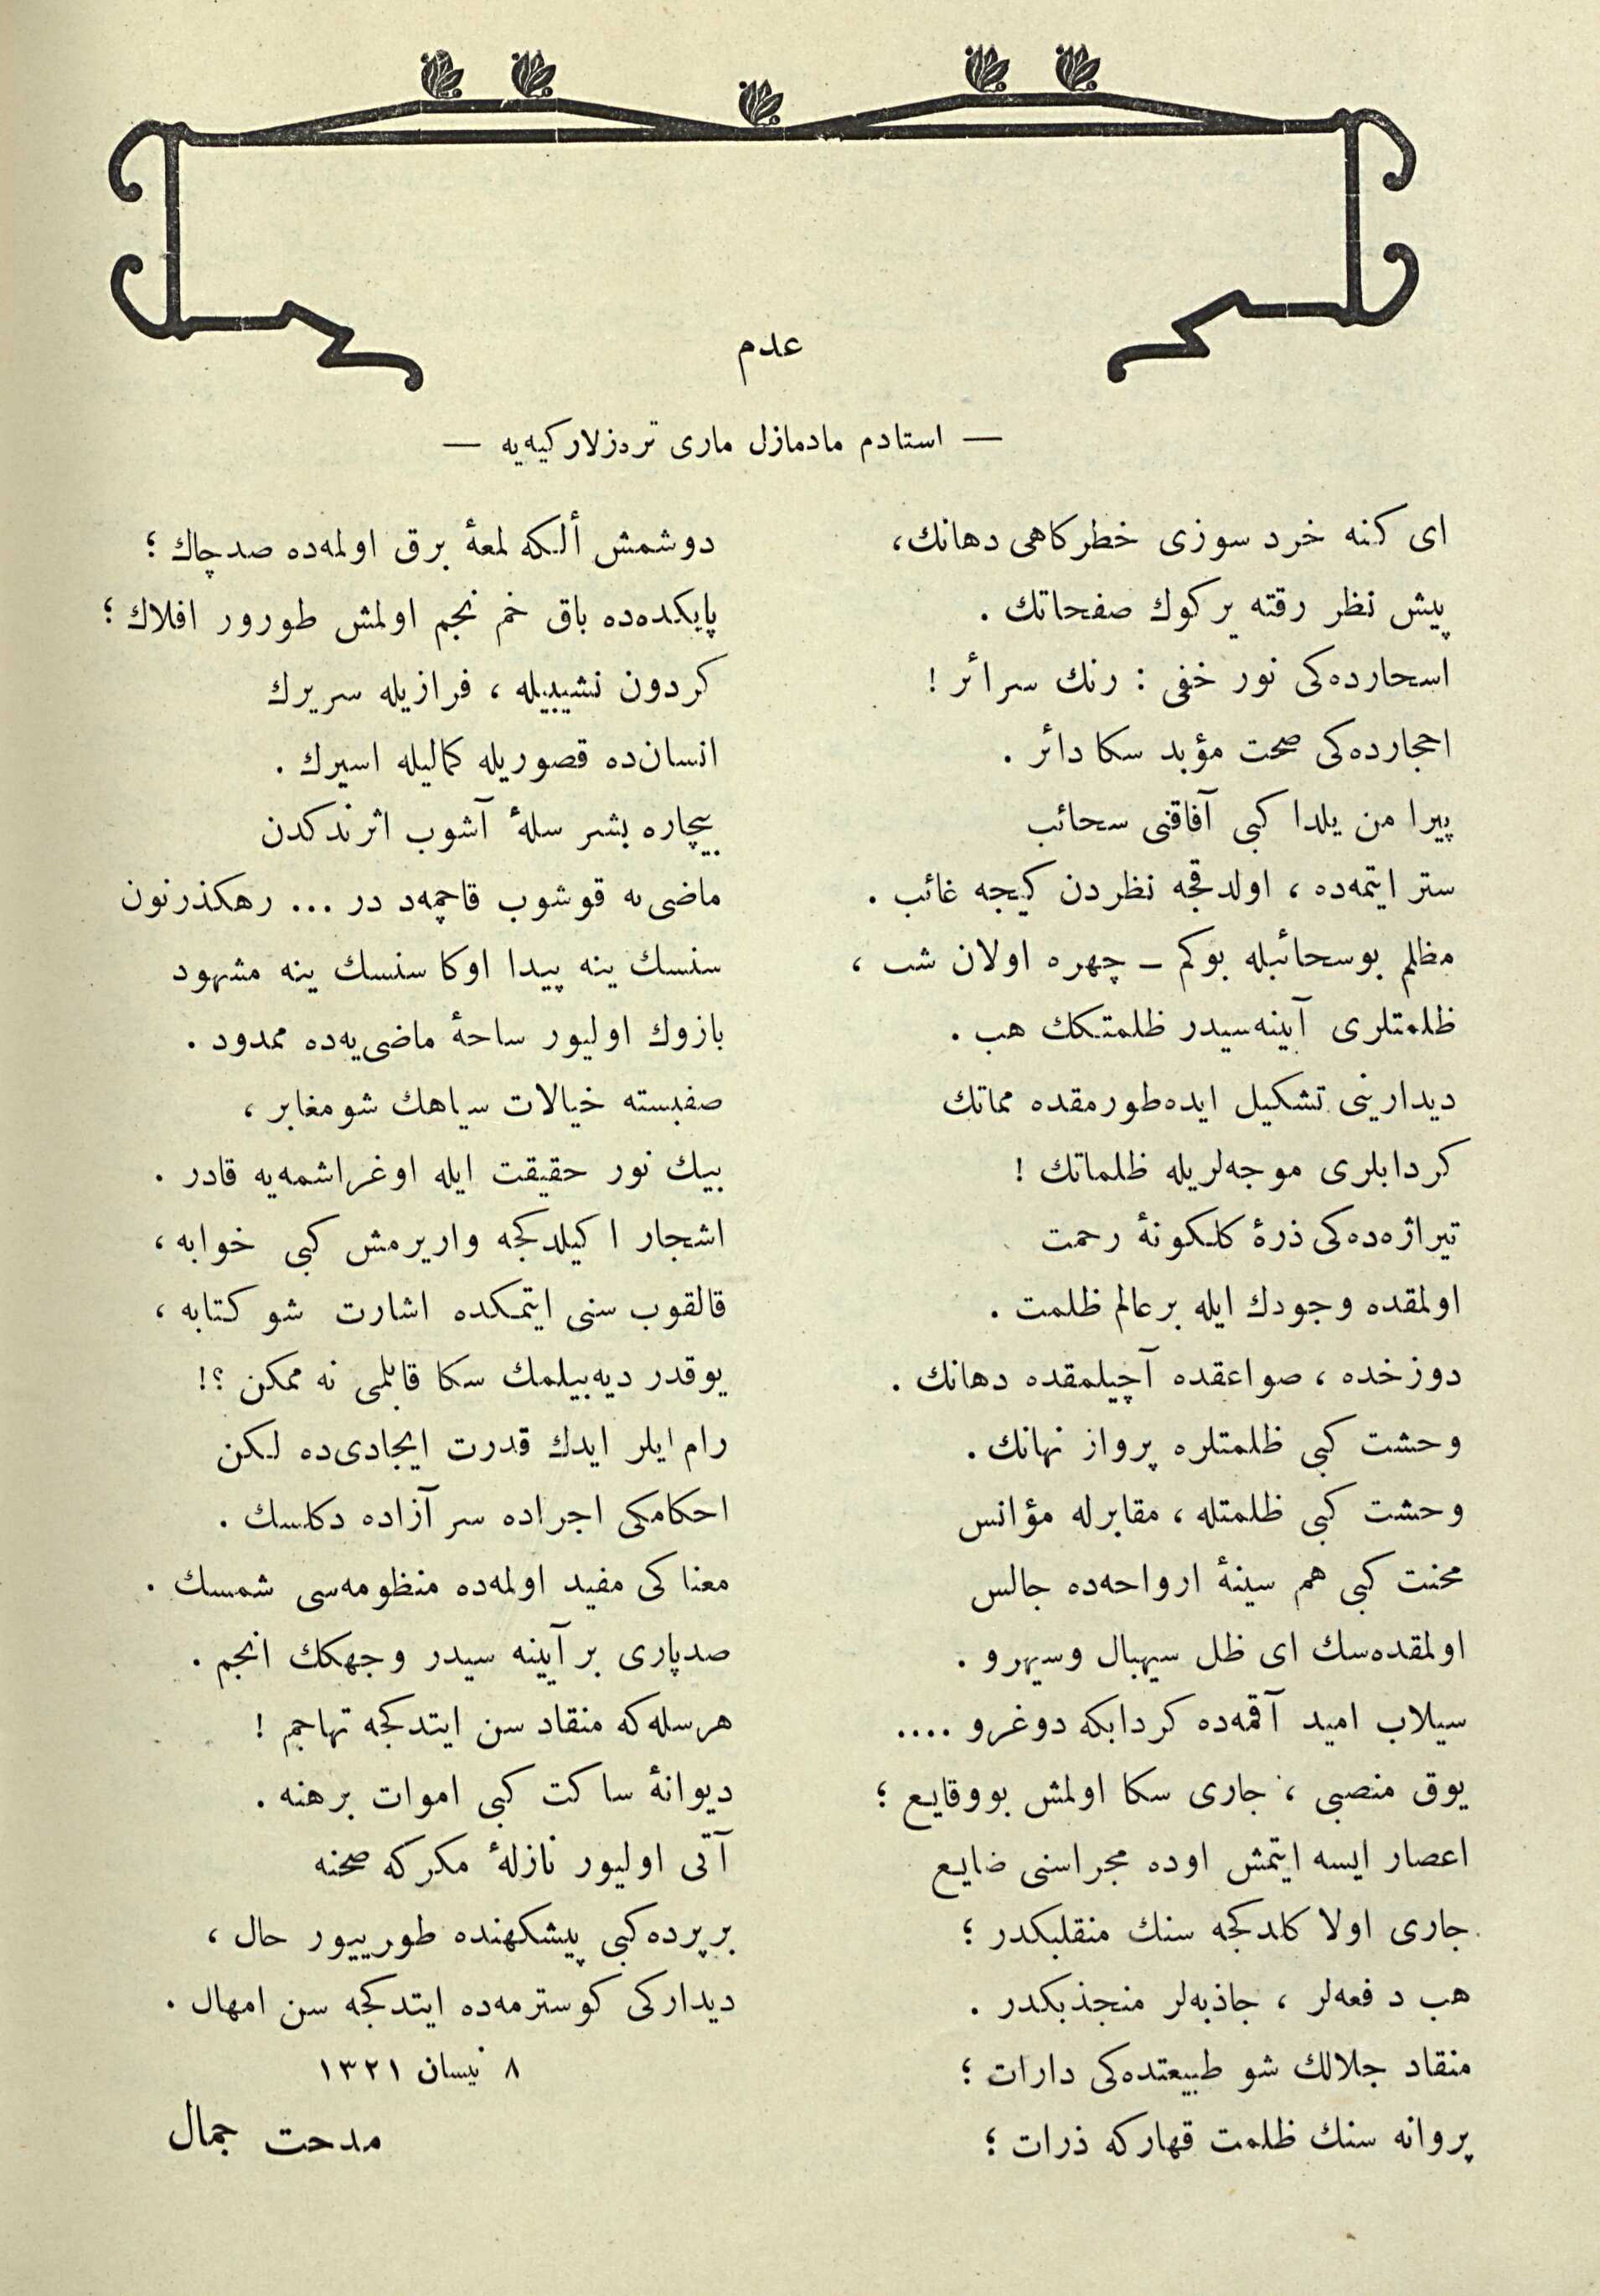 عدم
— استادم مادمازل ماری تره‌زلارکیه‌یه —
ای کنه خرد سوزی خطرکاهی دهانك،
پیش نظر رقته یر کوك صفحاتك .
اسحارده‌کی نور خفی : رنك سرائر !
احجارده‌کی صحت مؤبد سکا دائر .
پیرا من یلدا کبی آفاقنی سحائب
ستر ایتمه‌ده ، اولدقجه نظردن کیجه غائب .
مظلم بوسحائبله بوکم ـ چهره اولان شب ،
ظلمتلری آیینه‌سیدر ظلمتکك هب .
دیدارینی تشکیل ایده‌طورمقده مماتك
کردابلری موجه‌لریله ظلماتك !
تیراژه‌ده‌کی ذرۀ کلکونۀ رحمت
اولمقده وجودك ایله بر عالم ظلمت .
دوزخده ، صواعقده آچیلمقده دهانك .
وحشت کبی ظلمتلره پرواز نهانك .
وحشت کبی ظلمتله ، مقابرله مؤانس
محنت کبی هم سینۀ ارواحه‌ده جالس
اولمقده‌سك ای ظل سیهبال وسیهرو .
سیلاب امید آقمه‌ده کردابکه دوغرو ....
یوق منصبی ، جاری سکا اولمش بووقایع ؛
اعصار ایسه ایتمش اوده مجراسنی ضایع
جاری اولا کلدکجه سنك منقلبکدر ؛
هب دفعه‌لر ، جاذبه‌لر منجذبکدر .
منقاد جلالك شو طبیعتده‌کی دارات ؛
پروانه سنك ظلمت قهارکه ذرات ؛
دوشمش ألکه لمعۀ برق اولمه‌ده صدچاك ؛
پایکده‌ده باق خم نجم اولمش طورور افلاك ؛
کردون نشیبیله ، فرازیله سریرك
انسان‌ده قصوریله کمالیله اسیرك .
بیچاره بشر سلۀ آشوب اثرندکدن
ماضی‌یه قوشوب قاچمه‌د در ... رهکذرنون
سنسك ینه پیدا اوکا سنسك ینه مشهود
بازوك اولیور ساحۀ ماضی‌یه‌ده ممدود .
صفبسته خیالات سیاهك شومغابر ،
بیك نور حقیقت ایله اوغراشمه‌یه قادر .
اشجار اکیلدکجه واریرمش کبی خوابه ،
قالقوب سنی ایتمکده اشارت شو کتابه ،
یوقدر دیه‌بیلمك سکا قابلمی نه ممکن ؟!
رام ایلر ایدك قدرت ایجادی‌ده لکن
احکامکی اجراده سر آزاده دکلسك .
معناکی مفید اولمه‌ده منظومه‌سی شمسك .
صدپاری بر آیینه سیدر وجهکك انجم .
هرسله‌که منقاد سن ایتدکجه تهاجم !
دیوانۀ ساکت کبی اموات برهنه .
آتی اولیور نازلۀ مکرکه صحنه
برپرده‌کبی پیشکهنده طورییور حال ،
دیدارکی کوسترمه‌ده ایتدکجه سن امهال .
٨ نیسان ١٣٢١
مدحت جمال